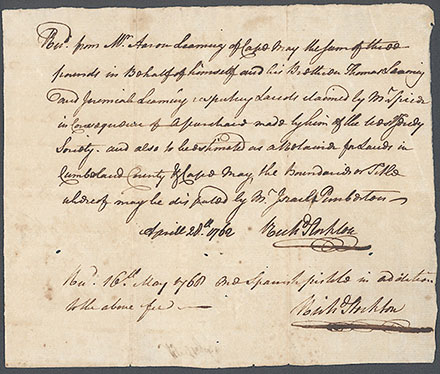 Recd. from Mr. Aaron Leaming of Cape May the sum of three
pounds in Behalf of himself and his Brethren Thomas Leaming
and Jeremiah Leaming respecting Lands claimed by Mr Spicer
in consequence of a purchase made by him of the West Jersey
Society. and also to be esteemed as a Retainer for Lands in
Cumberland County & Cape May, the Boundaries or Title
whereof may be disputed by Mr. Israel Pemberton
Aprill 28th 1762 Richd Stockton
Recd. 16th. May 1768 one Spanish pistole in addition
to the above fee
Richd Stockton